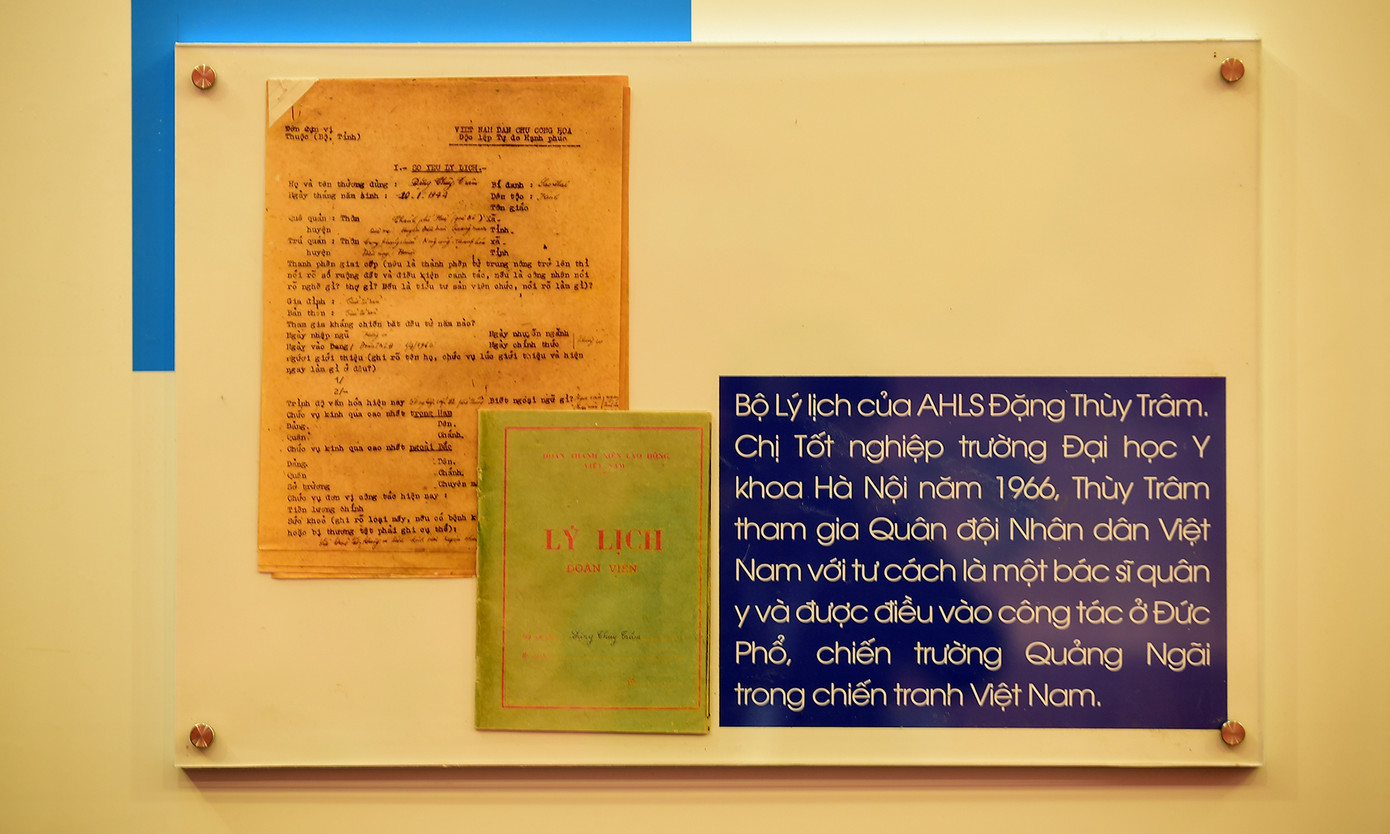 Đơn vị
Thuộc (Bộ, Tỉnh)
VIỆT NAM DÂN CHỦ CỘNG HÒA
Độc lập Tự do Hạnh phúc
I.- SƠ YẾU LÝ LỊCH.-
Họ và tên thường dùng : Đặng Thùy Trâm Bí danh :
Ngày tháng năm sinh : Dân tộc : Kinh
Tôn giáo
Quê quán : Thôn xã.
huyện Tỉnh.
Trú quán : Thôn xã
huyện Tỉnh
Thành phần giai cấp (nếu là thành phần từ trung nông trở lên thì
nói rõ số ruộng đất và điều kiện canh tác, nếu là công nhân nói
rõ nghề gì? thợ gì? Nếu là tiểu tư sản viên chức, nói rõ làm gì)?
Gia đình :
Bản thân :
Tham gia kháng chiến bắt đầu từ năm nào?
Ngày nhập ngũ
Ngày vào Đảng Ngày chính thức
người giới thiệu (ghi rõ tên họ, chức vụ lúc giới thiệu và hiện
nay làm gì ở đâu?)
1/
2/-
Trình độ văn hóa hiện nay Biết ngoại ngữ gì?
Chức vụ kinh qua cao nhất trong Nam
Đảng. Dân.
Quân. Chính.
Chức vụ kinh qua cao nhất ngoài Bắc
Đảng. Dân.
Quân Chính.
Sở trường
Chức vụ đơn vị công tác hiện nay :
Tiền lương chính
Sức khoẻ (ghi rõ loại mấy, nếu có bệnh
hoặc bị thương tật phải ghi cụ thể):
ĐOÀN THANH NIÊN LAO ĐỘNG
VIỆT NAM
LÝ LỊCH
ĐOÀN VIÊN
Đặng Thùy Trâm
Bộ Lý lịch của AHLS Đặng Thùy Trâm.
Chị Tốt nghiệp trường Đại học Y
khoa Hà Nội năm 1966, Thùy Trâm
tham gia Quân đội Nhân dân Việt
Nam với tư cách là một bác sĩ quân
y và được điều vào công tác ở Đức
Phổ, chiến trường Quảng Ngãi
trong chiến tranh Việt Nam.